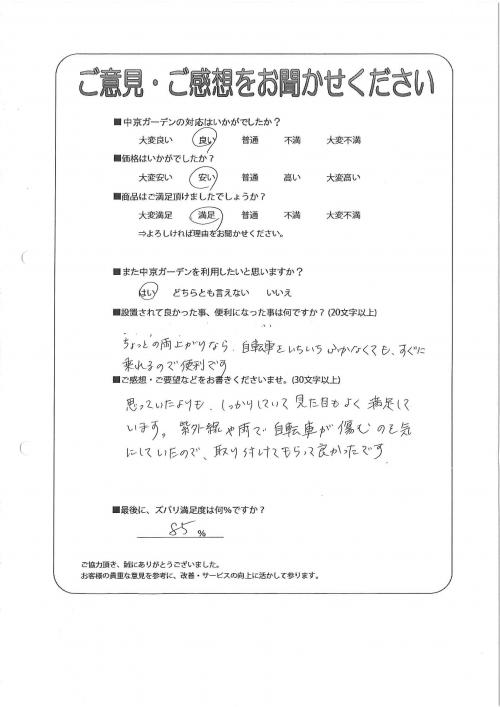 ご意見・ご感想をお聞かせください
■中京ガーデンの対応はいかがでしたか？
大変良い 良い 普通 不満 大変不満
■価格はいかがでしたか？
大変安い 安い 普通 高い 大変高い
■商品はご満足頂けましたでしょうか？
大変満足 満足 普通 不満 大変不満
⇒よろしければ理由をお聞かせください。
■また中京ガーデンを利用したいと思いますか？
はい どちらとも言えない いいえ
■設置されて良かった事、便利になった事は何ですか？(20文字以上)
ちょっとの雨上がりなら、自転車をいちいちふかなくても、すぐに
乗れるので便利です
■ご感想・ご要望などをお書きくださいませ。(30文字以上)
思っていたよりも、しっかりしていて見た目もよく満足して
います。紫外線や雨で自転車が傷むのも気
にしていたので、取り付けてもらって良かったです
■最後に、ズバリ満足度は何%ですか？
85 %
ご協力頂き、誠にありがとうございました。
お客様の貴重な意見を参考に、改善・サービスの向上に活かして参ります。